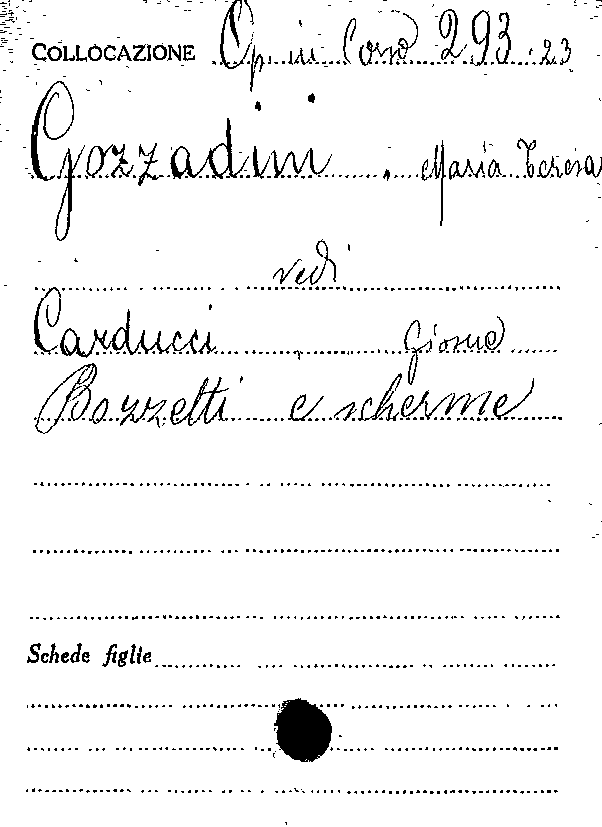 COLLOCAZIONE Op. in Corso 293.23
Gozzadini, Maria Teresa
vedi
Carducci, Giosue
Bozzetti e scherme
Schede figlie